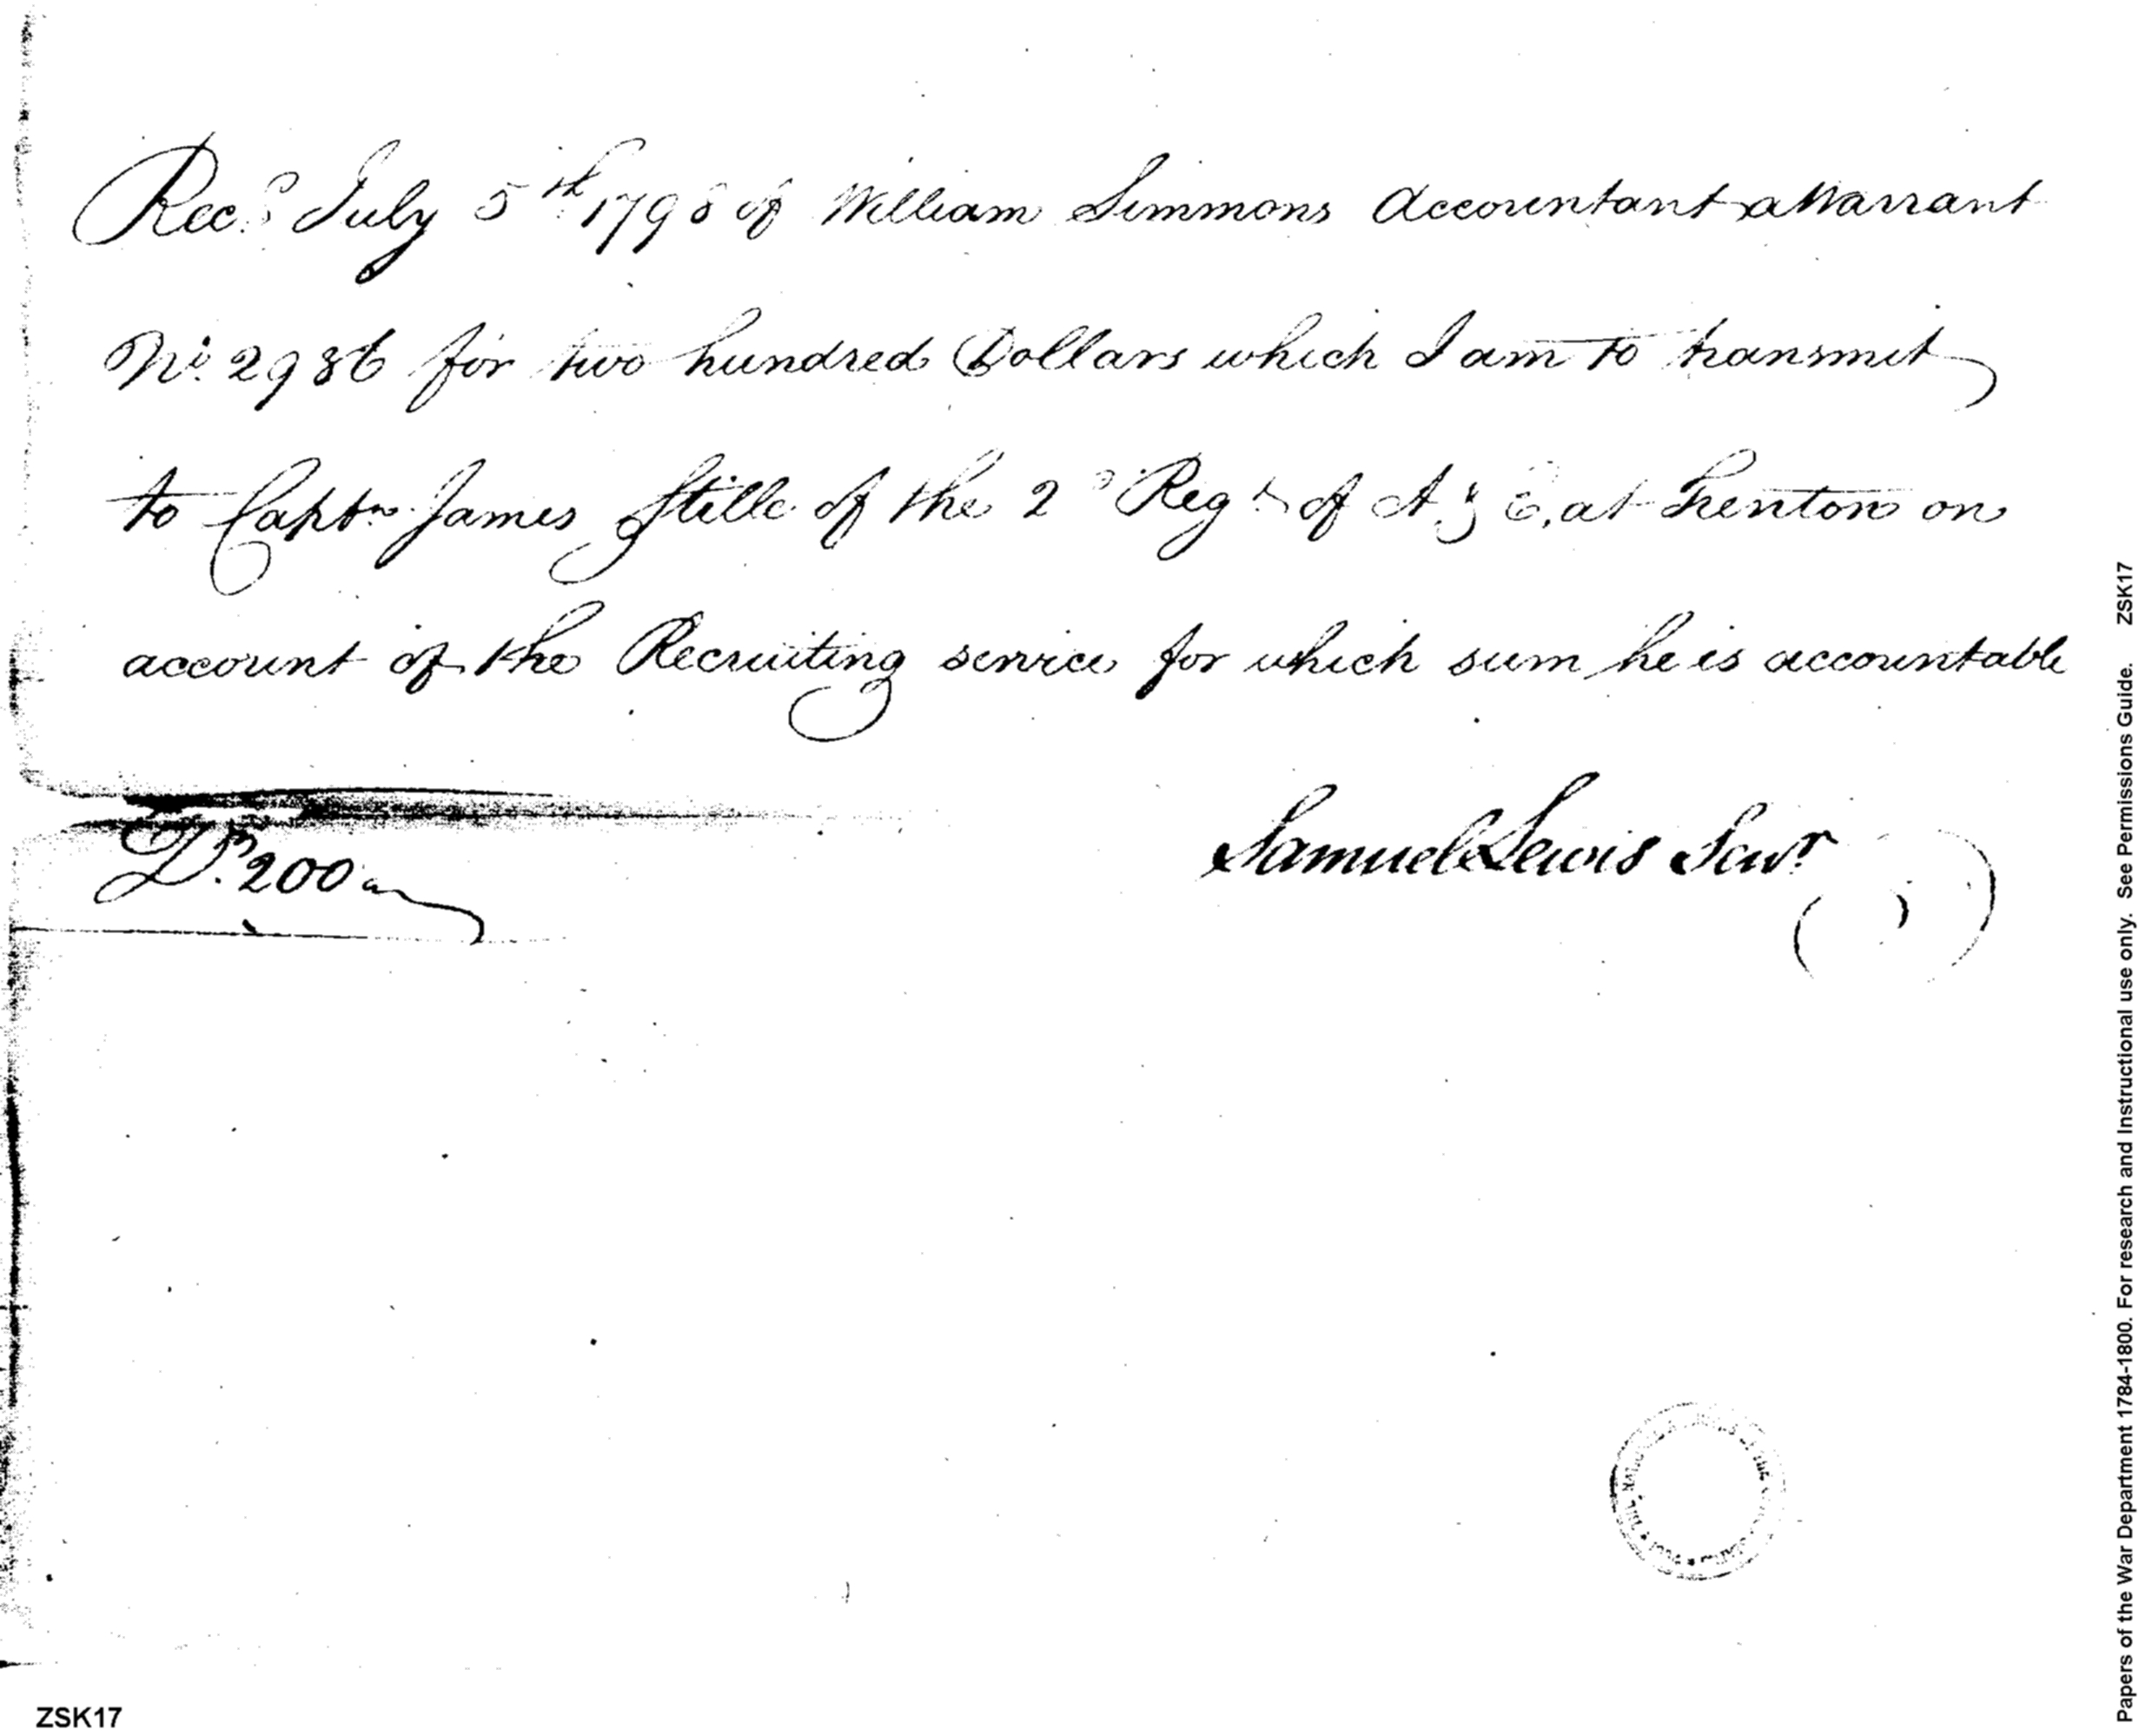 Recd. July 5th 1798 of William Simmons Accountant a Warrant
No. 2986 for two hundred Dollars which I am to transmit
to Captn. James Stille of the 2d Regt. of A & E, at Trenton on
account of the Recruiting service for which sum he is accountable
Samuel Lewis Senr.
Ds. 200
ZSK17
Papers of the War Department 1784-1800. For research and Instructional use only. See Permissions Guide. ZSK17